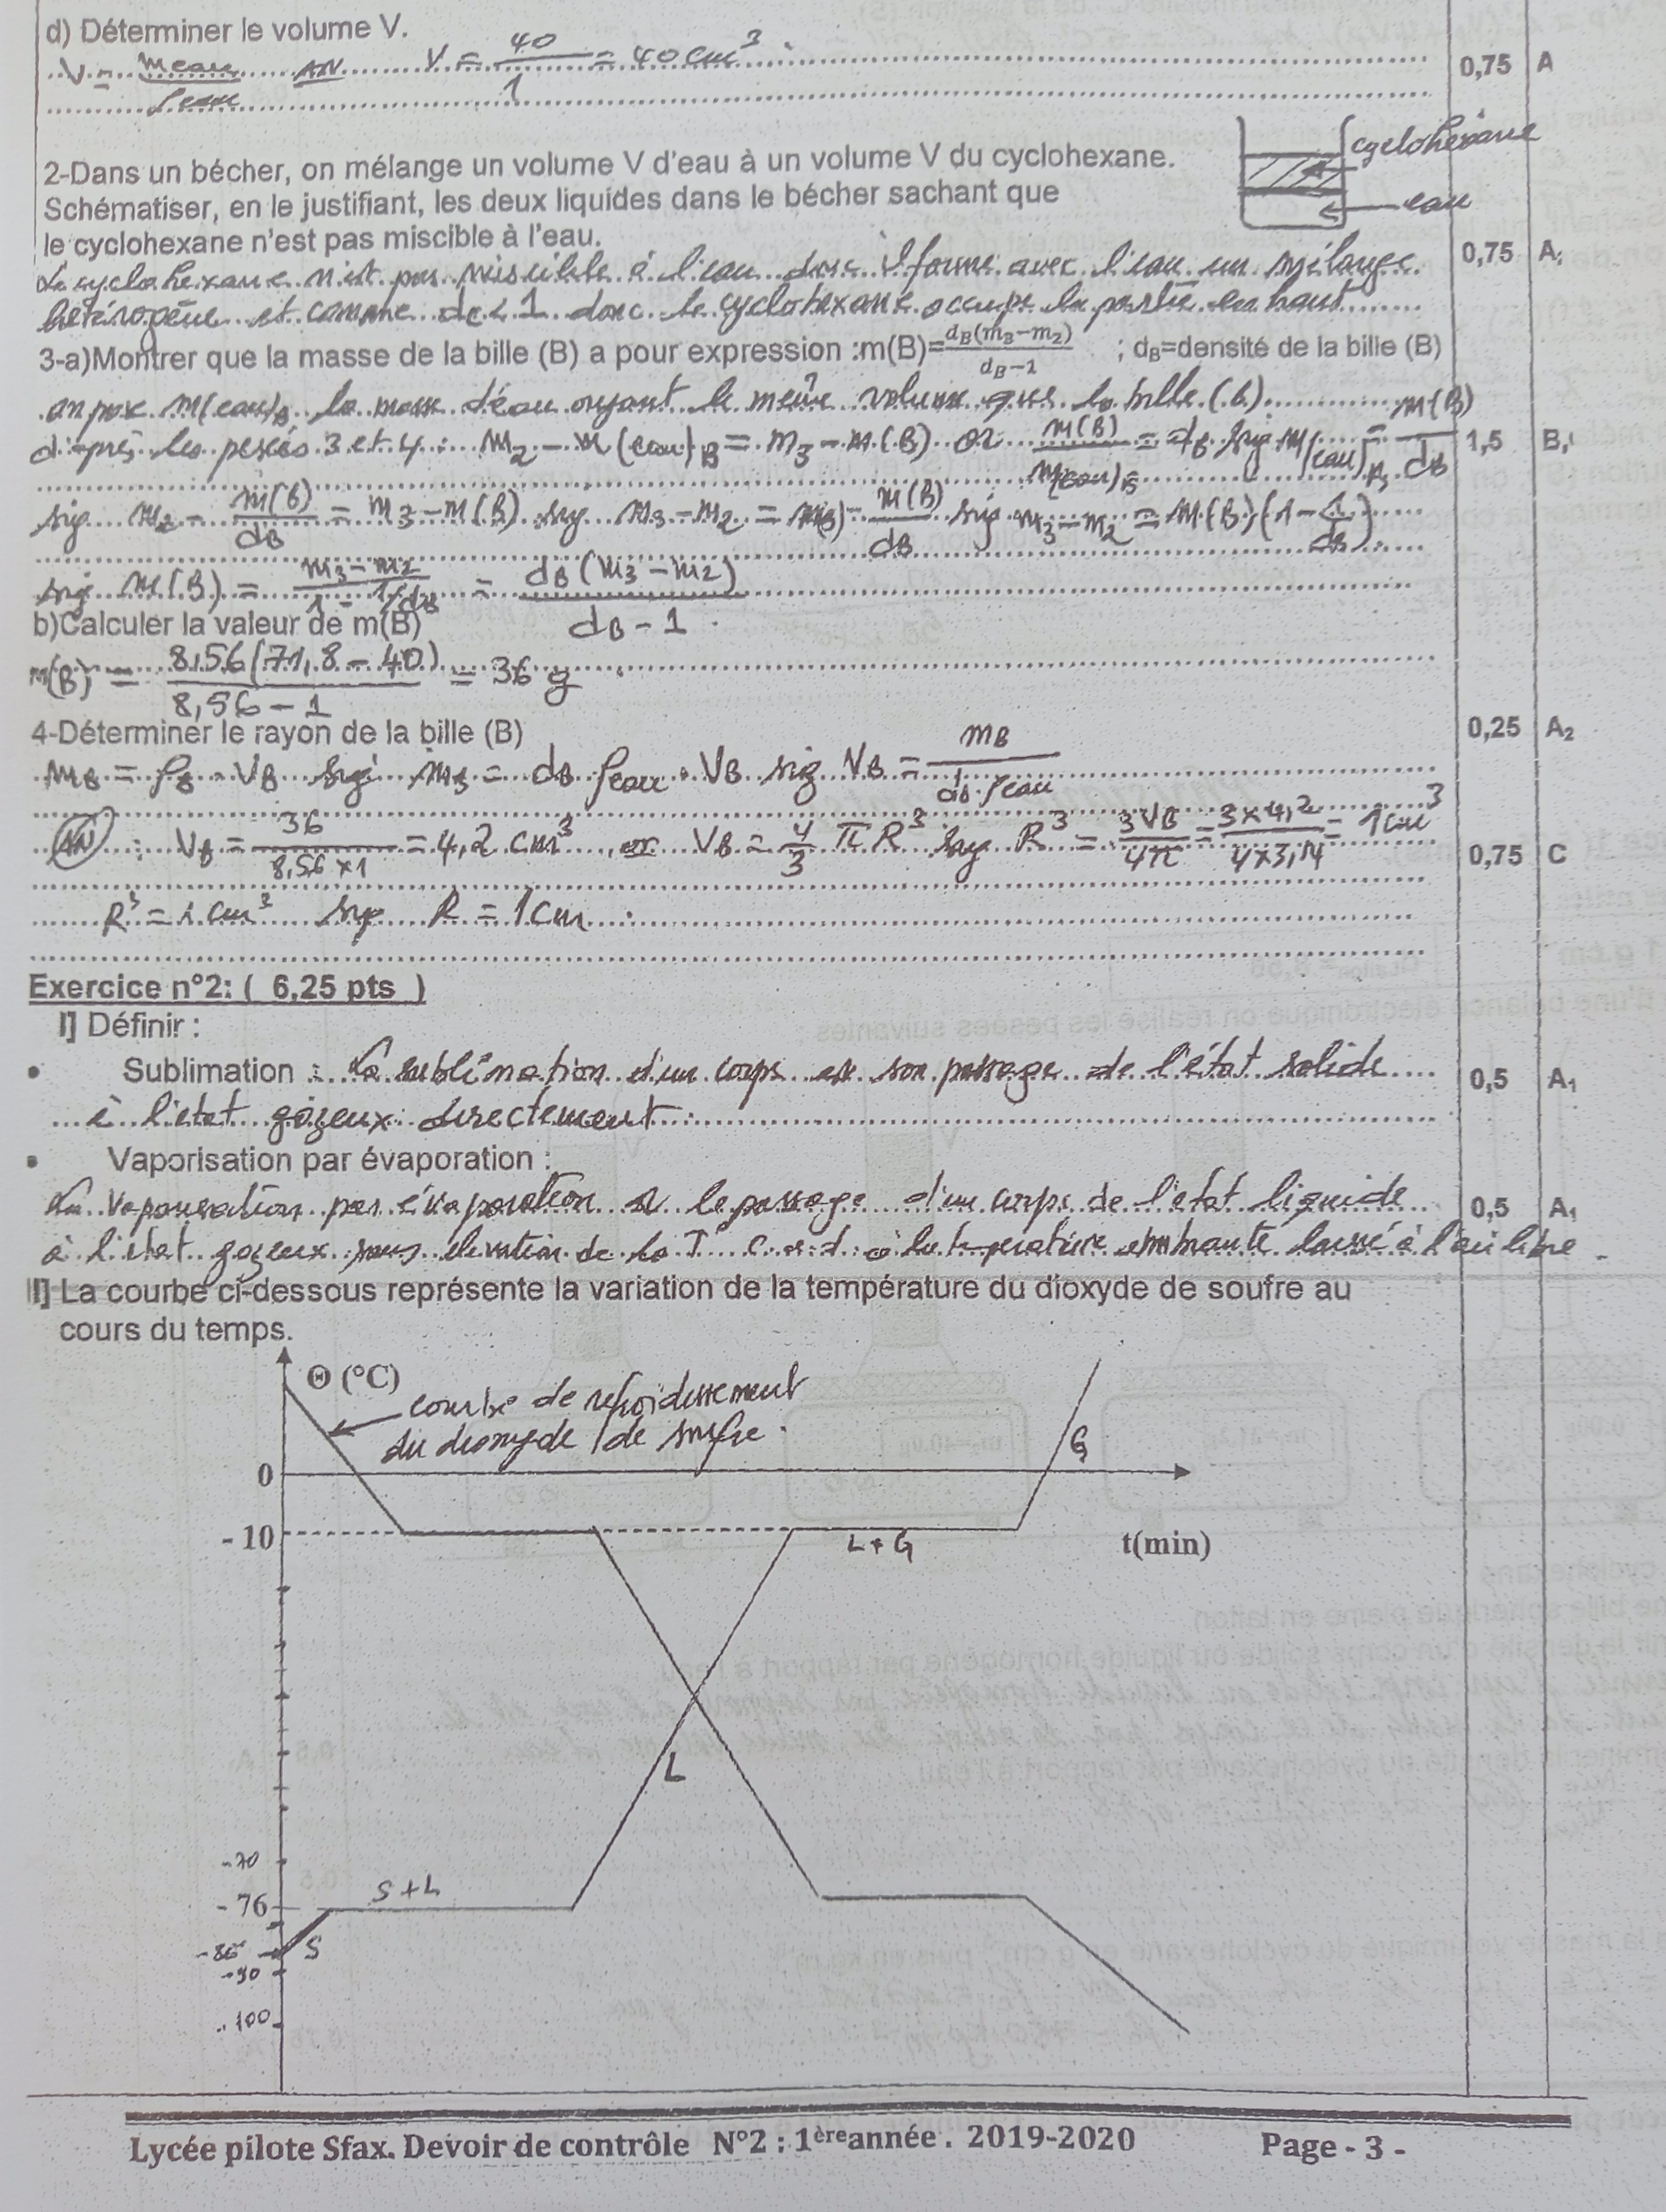 d) Déterminer le volume V.
V = m eau / ρ eau AN V = 40 / 1 = 40 cm³
0,75 A
2-Dans un bécher, on mélange un volume V d'eau à un volume V du cyclohexane.
Schématiser, en le justifiant, les deux liquides dans le bécher sachant que
le cyclohexane n'est pas miscible à l'eau.
cyclohexane
eau
Le cyclohexane n'est pas miscible à l'eau donc il forme avec l'eau un mélange
0,75 A
hétérogène et comme dc < 1 donc le cyclohexane occupe la partie en haut
3-a)Montrer que la masse de la bille (B) a pour expression :m(B)=dB(m3−m2) / dB−1 ; dB=densité de la bille (B)
on pose m(eau)B la masse d'eau ayant le même volume que la bille (B).
d'après les pesées 3 et 4 : m2 - m(eau)B = m3 - m(B) or m(B) / m(eau)B = dB sig m(eau)B = m(B) / dB
1,5 B
sig m2 - m(B) / dB = m3 - m(B) sig m3 - m2 = m(B) - m(B) / dB sig m3 - m2 = m(B) (1 - 1 / dB)
sig m(B) = m3 - m2 / 1 - 1/dB = dB (m3 - m2) / dB - 1
b)Calculer la valeur de m(B)
m(B) = 8,56 (71,8 - 40) / 8,56 - 1 = 36 g
4-Déterminer le rayon de la bille (B)
0,25 A2
mB = ρB . VB sig mB = dB ρeau . VB sig VB = mB / dB . ρeau
AN : VB = 36 / 8,56 x 1 = 4,2 cm³ or VB = 4/3 π R³ sig R³ = 3 VB / 4π = 3 x 4,2 / 4 x 3,14 = 1 cm³
0,75 C
R³ = 1 cm³ sig R = 1 cm
Exercice n°2: ( 6,25 pts )
I] Définir :
• Sublimation : La sublimation d'un corps est son passage de l'état solide
0,5 A1
à l'état gazeux directement
• Vaporisation par évaporation :
La vaporisation par évaporation est le passage d'un corps de l'état liquide
0,5 A1
à l'état gazeux sans élévation de la T° c.a.d. à la température ambiante laissé à l'air libre
II] La courbe ci-dessous représente la variation de la température du dioxyde de soufre au
cours du temps.
Θ (°C)
courbe de refroidissement
du dioxyde de soufre
G
0
- 10
L + G
t(min)
L
-70
S + L
- 76
S
-90
-100
Lycée pilote Sfax. Devoir de contrôle N°2 : 1ère année . 2019-2020 Page - 3 -